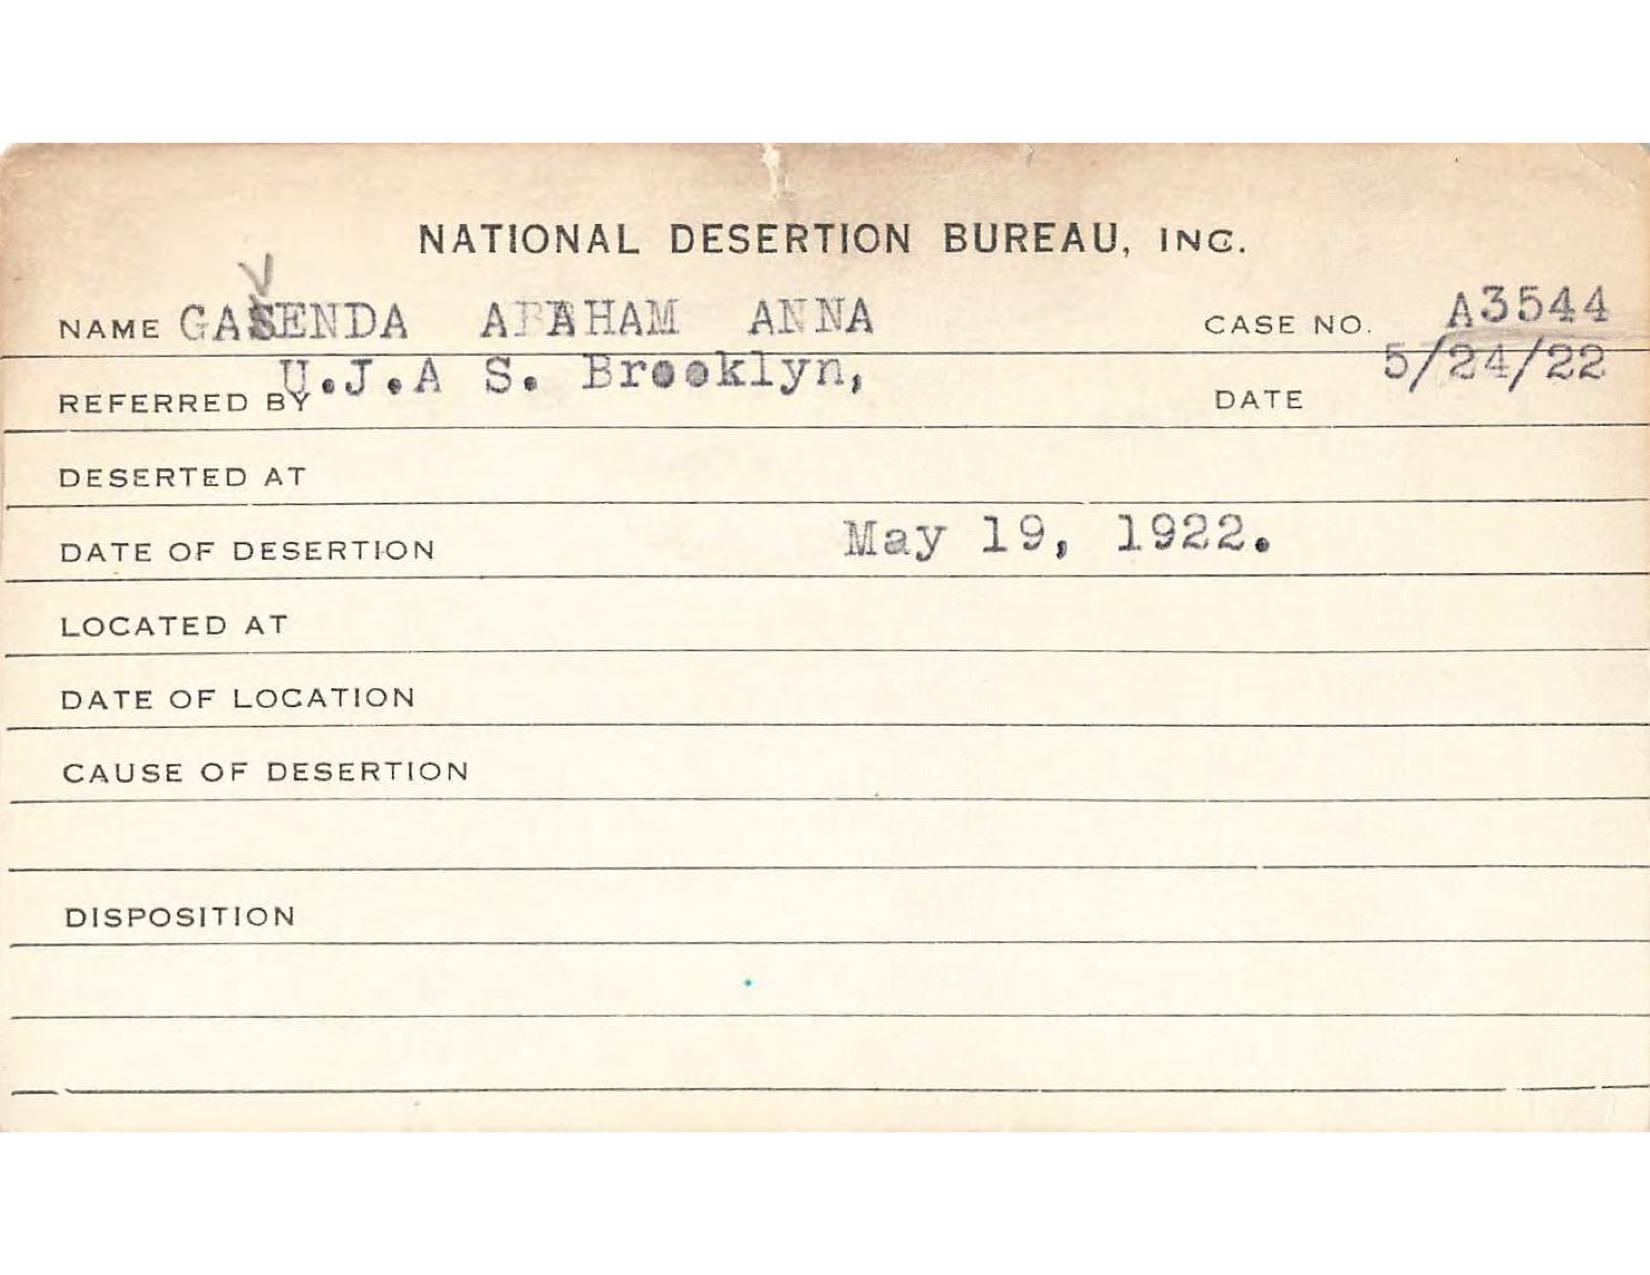 NATIONAL DESERTION BUREAU, INC.
V
NAME GASENDA ABRAHAM ANNA CASE NO. A3544
REFERRED BY U.J.A S. Brooklyn, DATE 5/24/22
DESERTED AT
DATE OF DESERTION May 19, 1922.
LOCATED AT
DATE OF LOCATION
CAUSE OF DESERTION
DISPOSITION